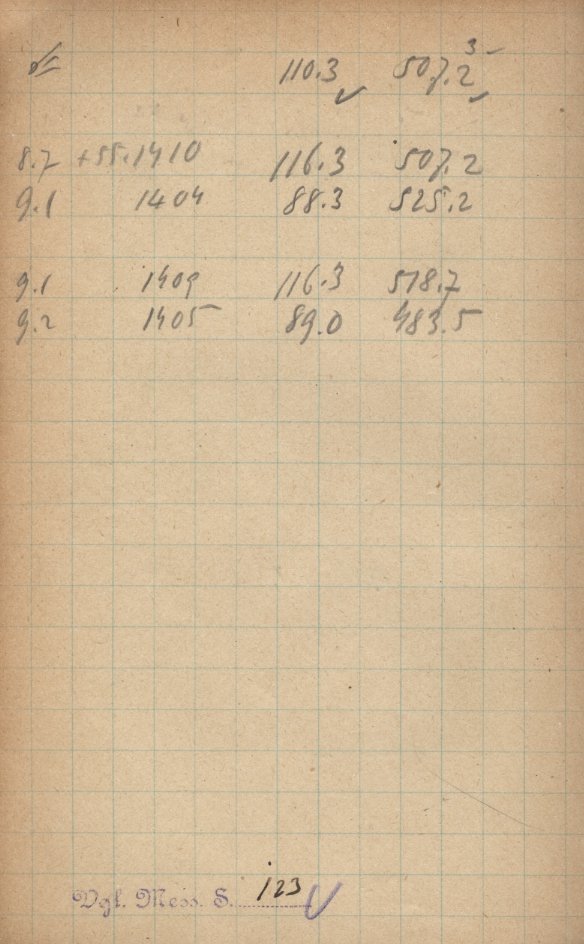 110.3 507.2 3
8.7 +55.1410 116.3 507.2
9.1 1404 88.3 525.2
9.1 1409 116.3 518.7
9.2 1405 89.0 483.5
Vgl. Mess. S. 123